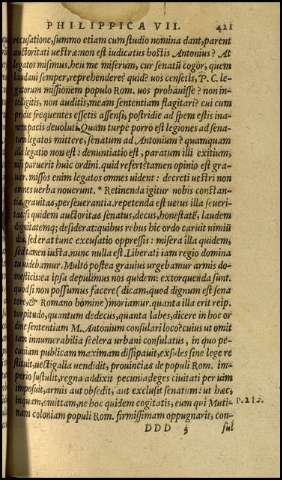 PHILIPPICA VII. 421
recusatione, summo etiam cum studio nomina dant, parent
auctoritati uestræ: non est iudicatus hostis Antonius? At
legatos misimus, heu me miserum, cur senatū cogor, quem
laudaui semper, reprehendere? quid? uos censetis, P. C. le-
gatorum missionem populo Rom. uos probauisse? non in-
telligitis, non auditis, meam sententiam flagitari? cui cum
pridie frequentes essetis assensi, postridie ad spem estis ina-
nem pacis deuoluti. Quam turpe porro est legiones ad sena-
tum legatos mittere, senatum ad Antonium? quamquam
illa legatio non est: denuntiatio est, paratum illi exitium,
nisi paruerit huic ordini. quid refert? tamen opinio est gra-
uior. missos enim legatos omnes uident: decreti uestri non
omnes uerba nouerunt. * Retinenda igitur nobis constan-
tia, grauitas, perseuerantia, repetenda est uetus illa seueri-
tas: si quidem auctoritas senatus, decus, honestatē, laudem
dignitatemq; desiderat: quibus rebus hic ordo caruit nimiū
diu. sed erat tunc excusatio oppressis: misera illa quidem,
sed tamen iusta, nunc nulla est. Liberati iam regio domina
tu uidebamur. Multó postea grauius urgebamur armis do-
mesticis. ea ipsa depulimus nos quidem: extorquenda sunt.
quod si non possumus facere (dicam, quod dignum est sena
tore, & Romano homine) moriamur. quanta illa erit reip.
turpitudo, quantum dedecus, quanta labes, dicere in hoc or
dine sententiam M. Antonium consulari loco? cuius ut omit
tam innumerabilia scelera urbani consulatus, in quo pe-
cuniam publicam maximam dissipauit, exsules sine lege re
stituit, uectigalia uendidit, prouincias de populi Rom. im-
perio sustulit, regna addixit pecunia, leges ciuitati per uim
imposuit, armis aut obsedit, aut exclusit senatum: ut hæc,
inquam, omittam, ne hoc quidem cogitatis, eum qui Muti-
nam coloniam populi Rom. firmissimam oppugnarit, con-
DDD 3 sul